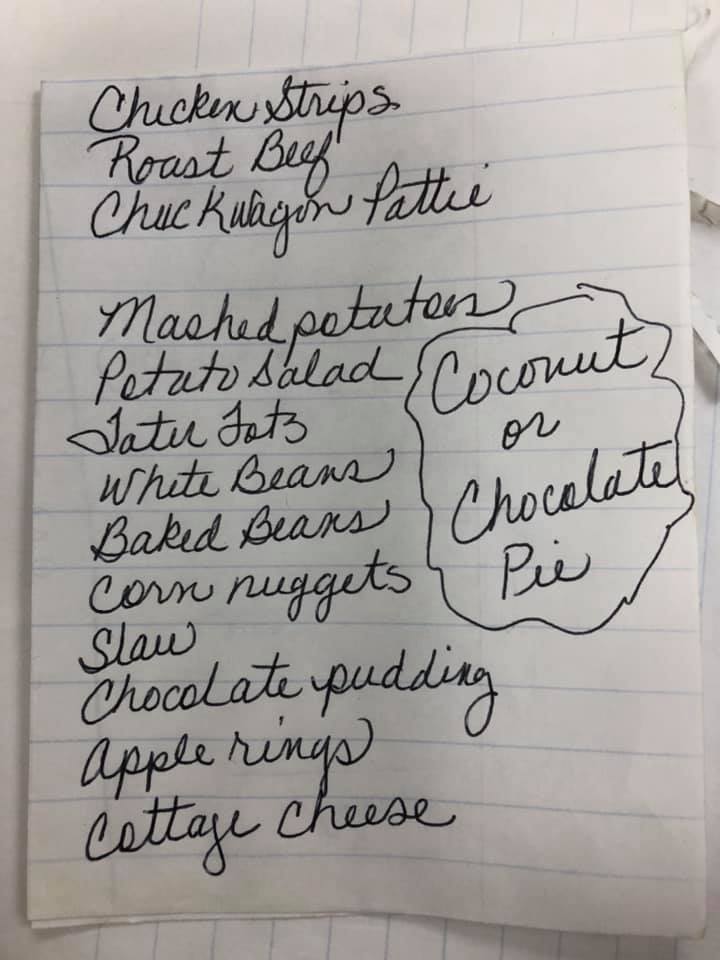 Chicken Strips
Roast Beef
Chuckwagon Pattie
Mashed potatoes
Potato Salad
Tater Tots
White Beans
Baked Beans
Corn nuggets
Slaw
Chocolate pudding
Apple rings
Cottage cheese
Coconut
or
Chocolate
Pie